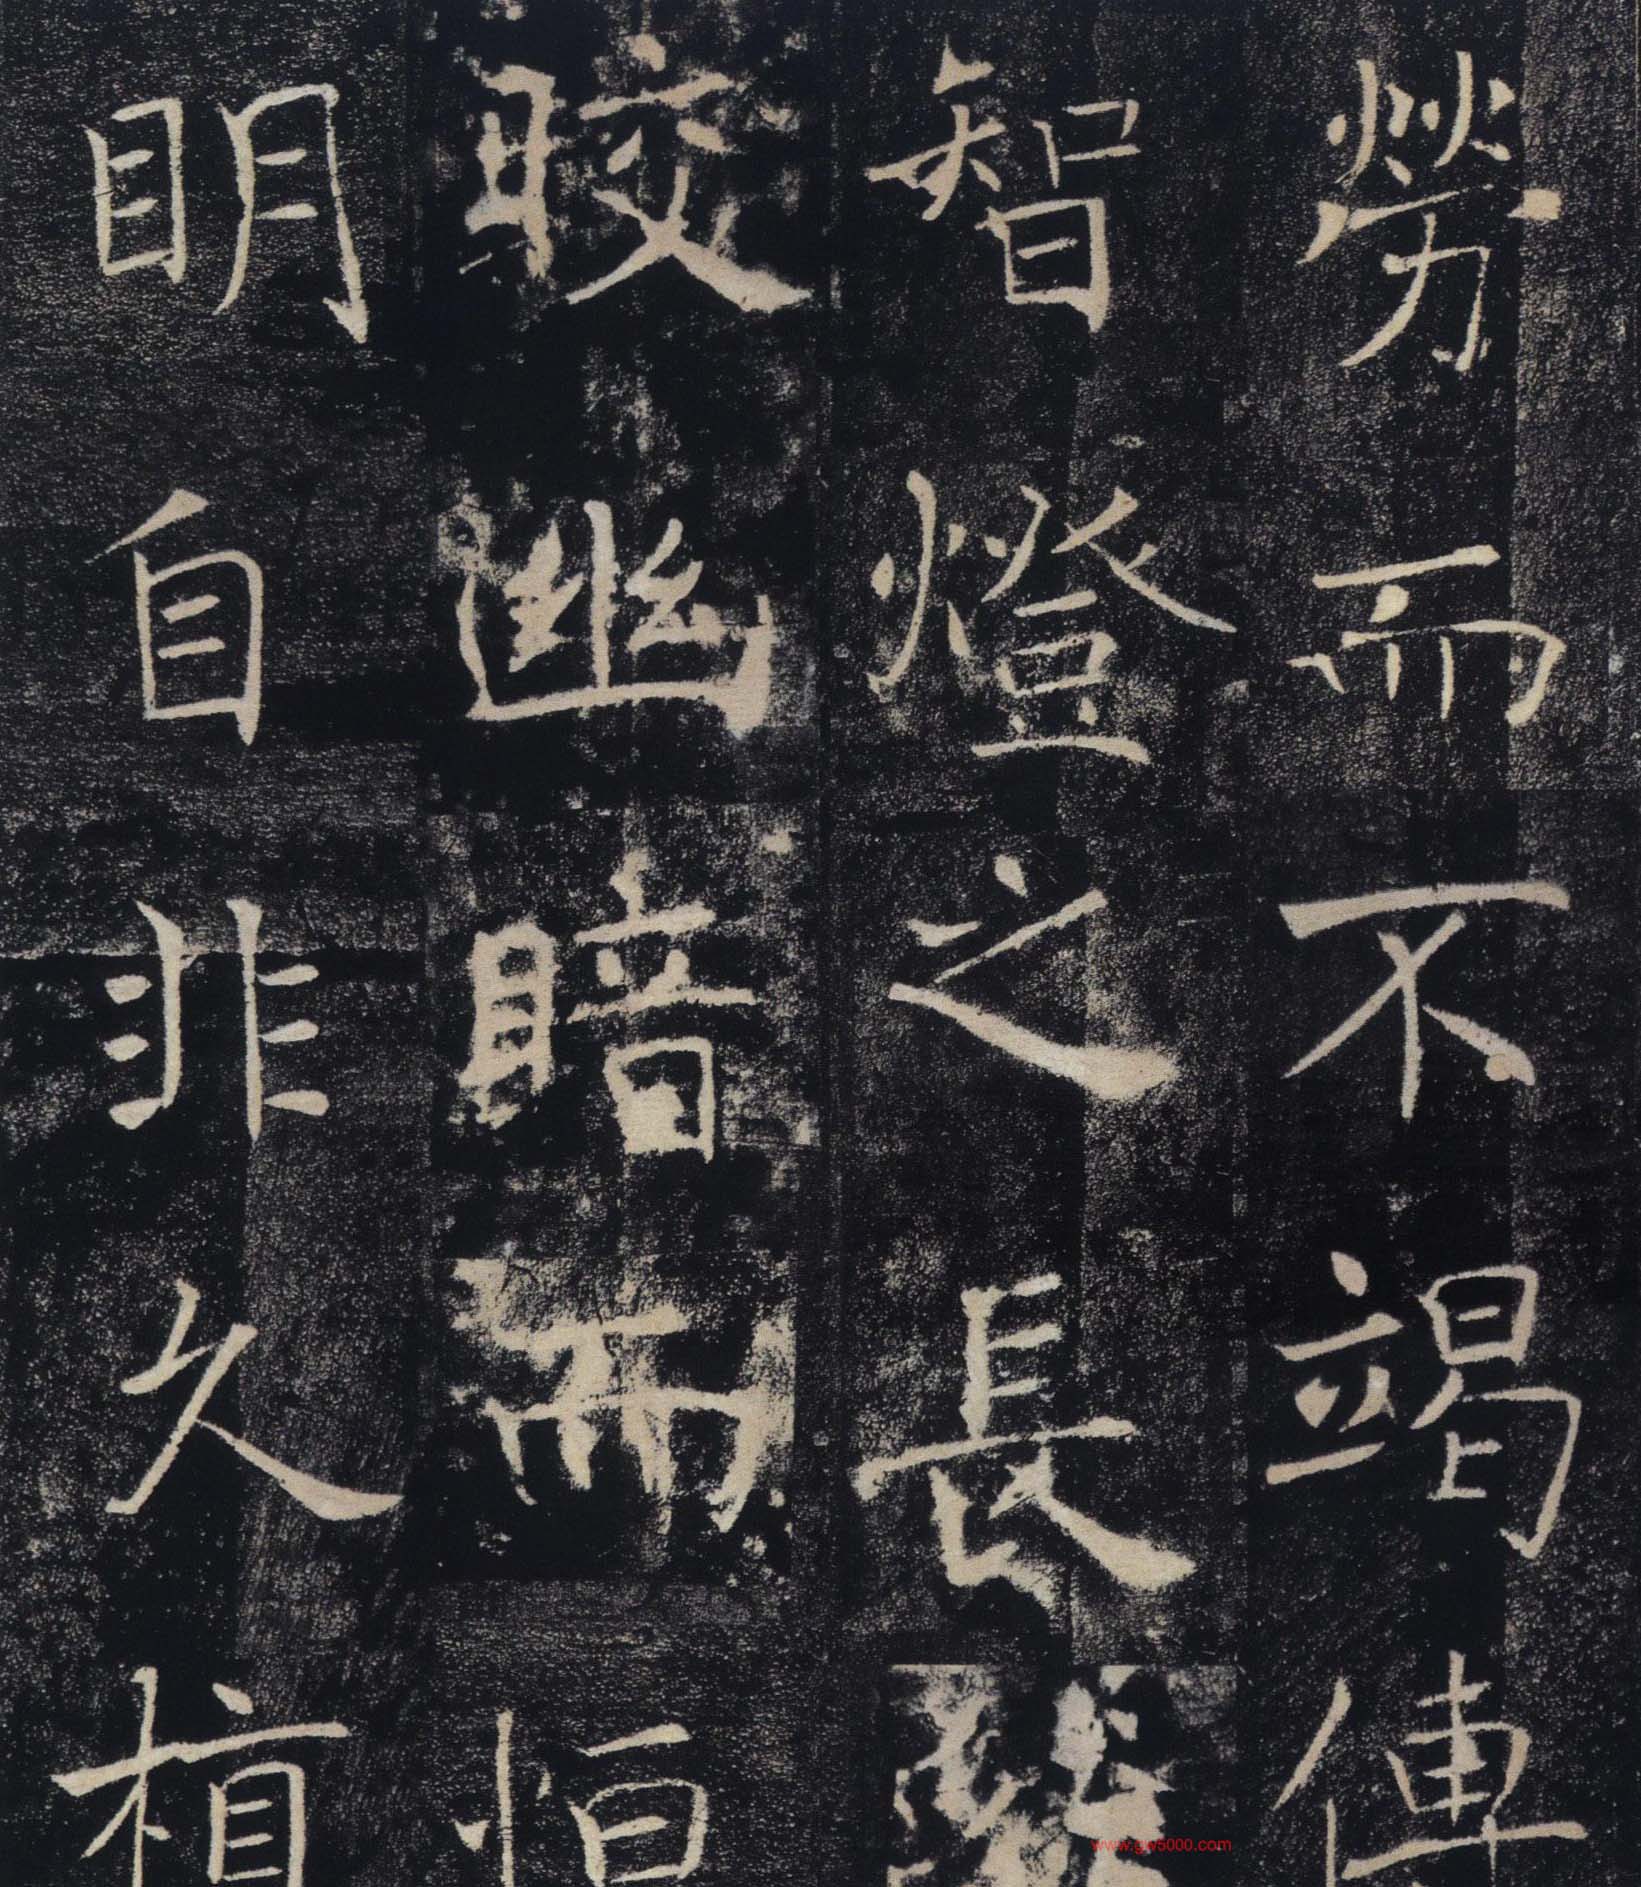 勞而不竭傳
智燈之長
皎幽暗而恒
眀自非久植
www.gw5000.com